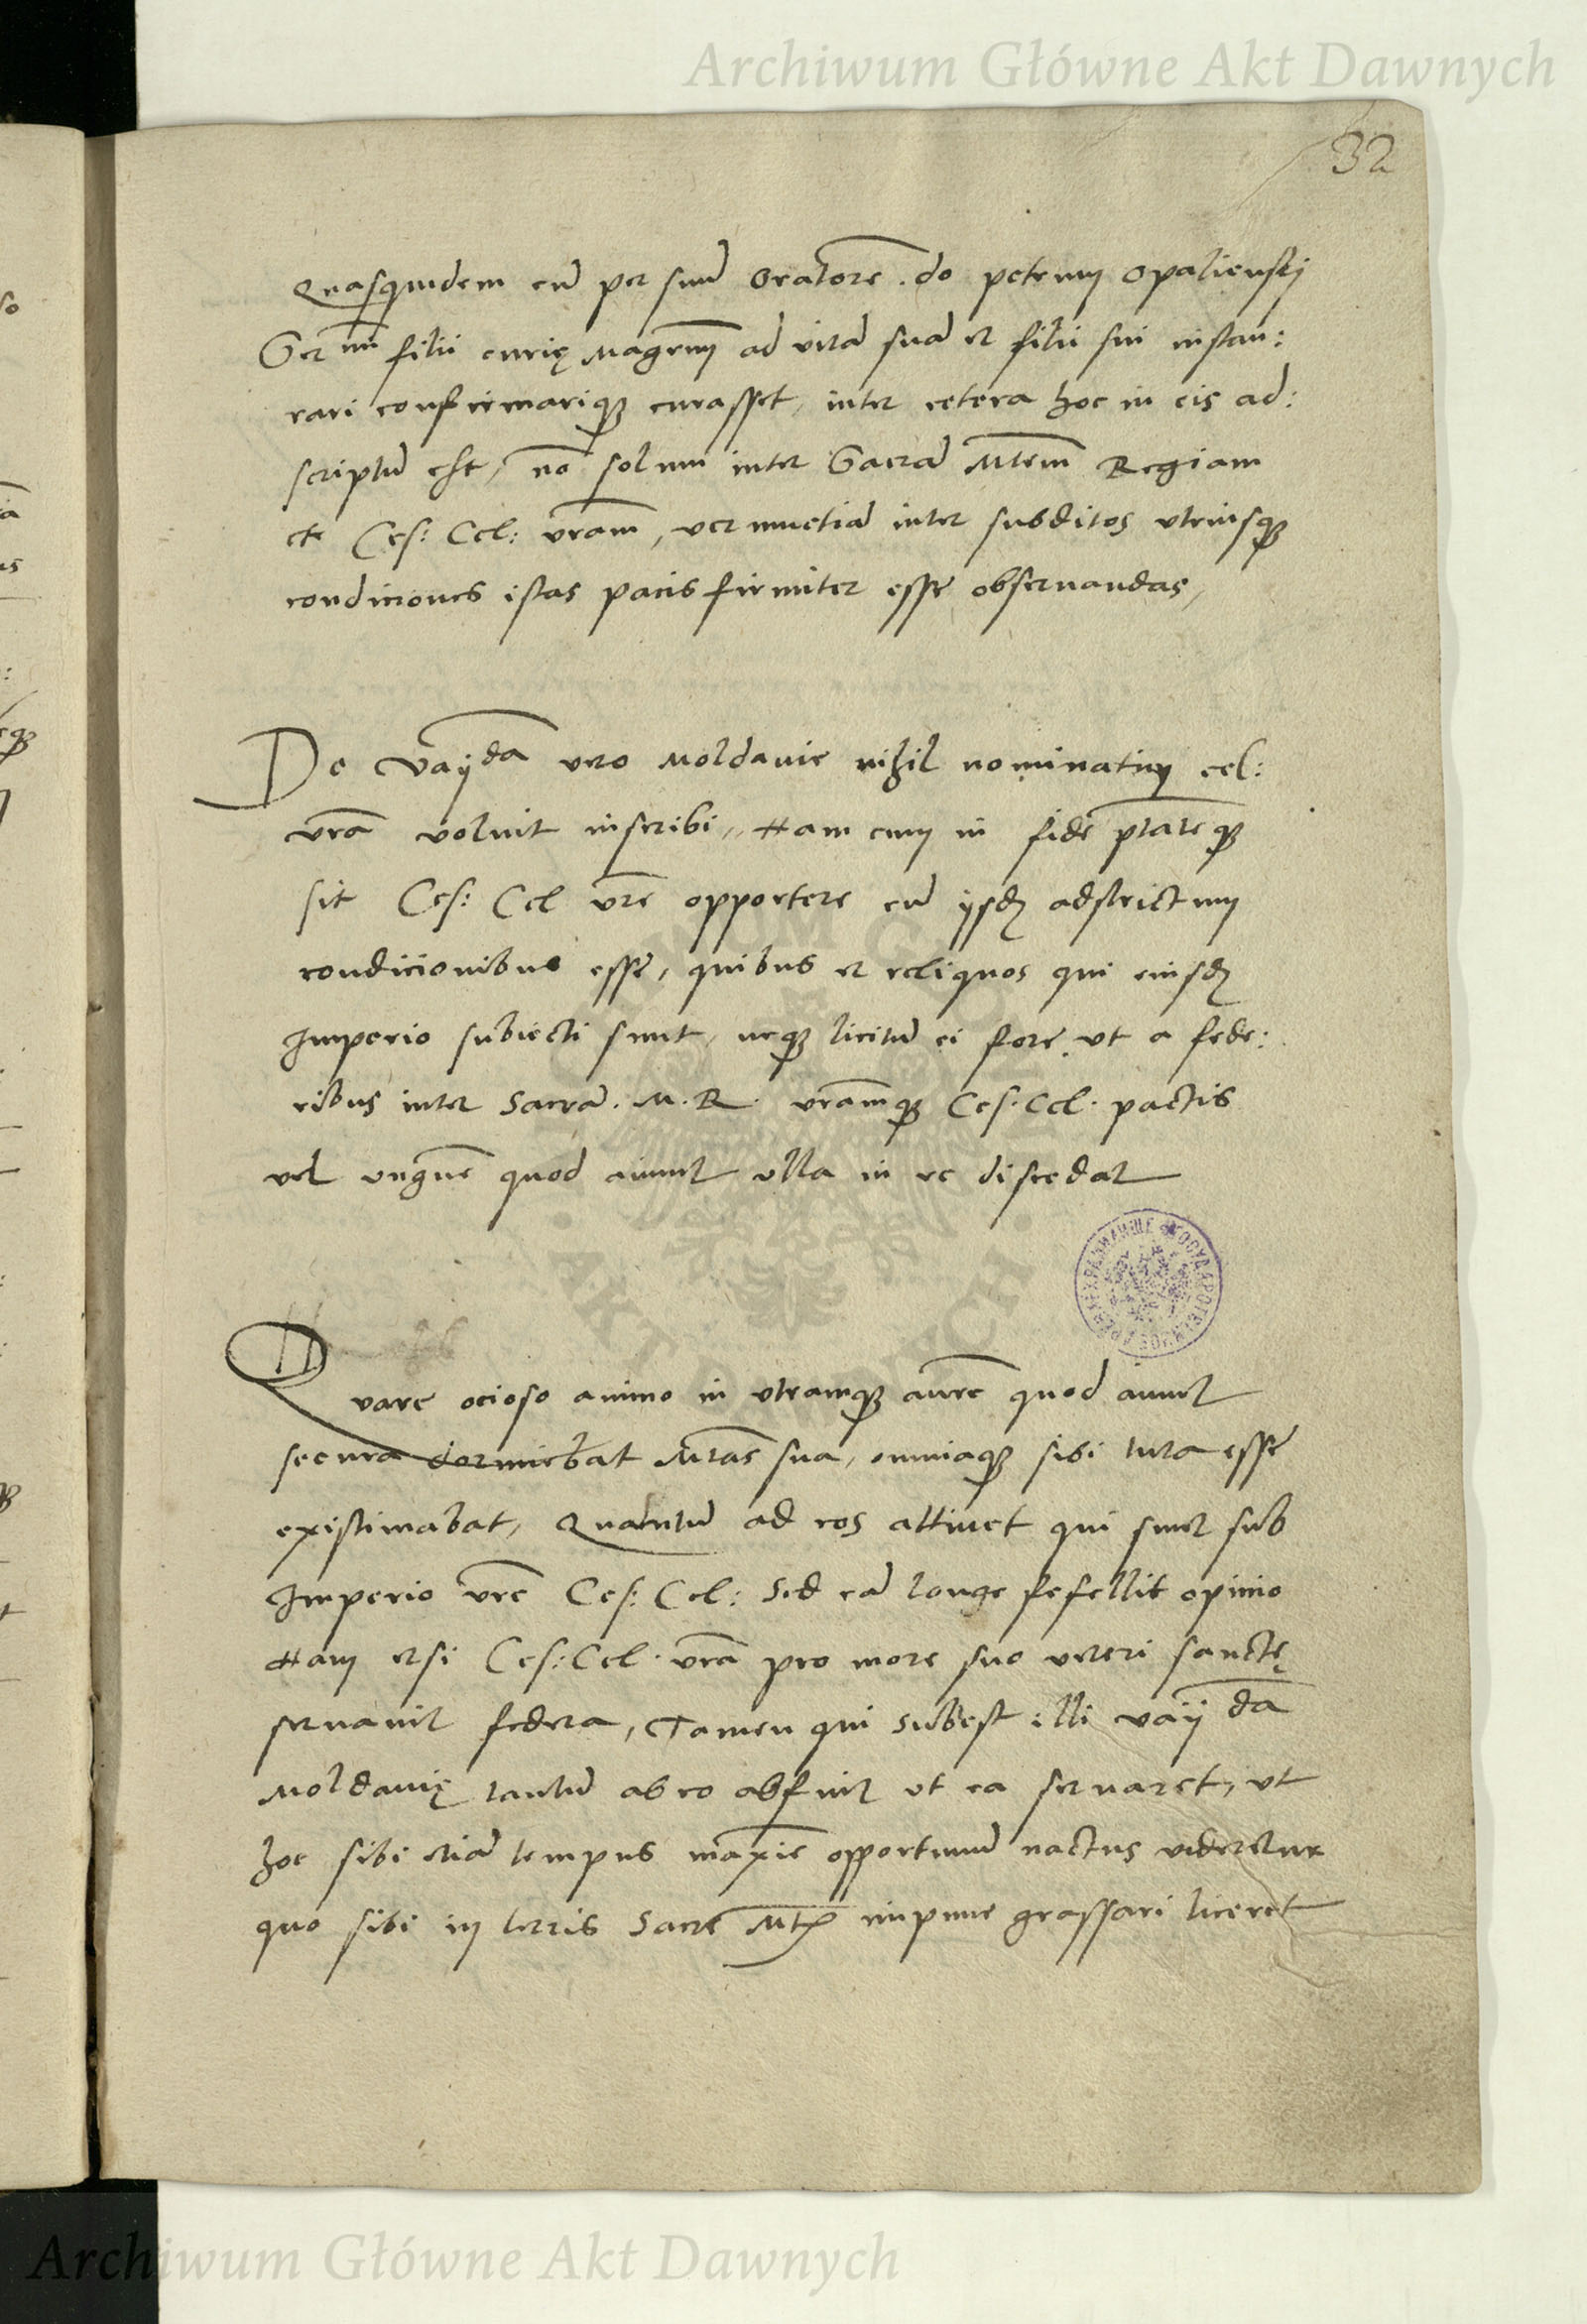 Archiwum Główne Akt Dawnych
32
Quasquidem cū per suū Oratorē. do petrum opalienskij
Ser mi filii curię Magrum ad vitā suā et filii sui instau:
rari confirmariqꝫ curasset, inter cetera hoc in eis ad:
scriptū est, nō solum inter Sacrā Mtem Regiam
et Ces: Cel: vram, verumetiā inter subditos vtriusqꝫ
condiciones istas pacis firmiter esse obseruandas,
De vaÿda vero Moldauie nihil nominatim cel:
vrā voluit inscribi, Nam cum in fidē ptateqꝫ
sit Ces: Cel vrē opportere eū ijsdꝫ adstrictum
condicionibus esse, quibus et reliquos qui eiusdꝫ
Imperio subiecti sunt, neqꝫ licitū ei fore, vt a fede:
ribus inter Sacrā. M. R. vramqꝫ Ces: Cel. pactis
vel vnguē quod aiunt vlla in re discedat
Quare ocioso animo in vtramqꝫ aurē quod aiunt
secura dormiebat Mtas sua, omniaqꝫ sibi tuta esse
existimabat, Quantū ad eos attinet qui sunt sub
Imperio vrē Ces: Cel: Sed eā longe fefellit opinio
Nam etsi Ces: Cel. vrā pro more suo veteri sanctę
seruauit federa, Tamen qui subest illi vaÿda
Moldauię tantū ab eo abfuit vt ea seruaret, vt
hoc sibi etiā tempus maxie opportunū nactus videretur
quo sibi in terris Sacrē Mtis impune grassari liceret
Archiwum Główne Akt Dawnych